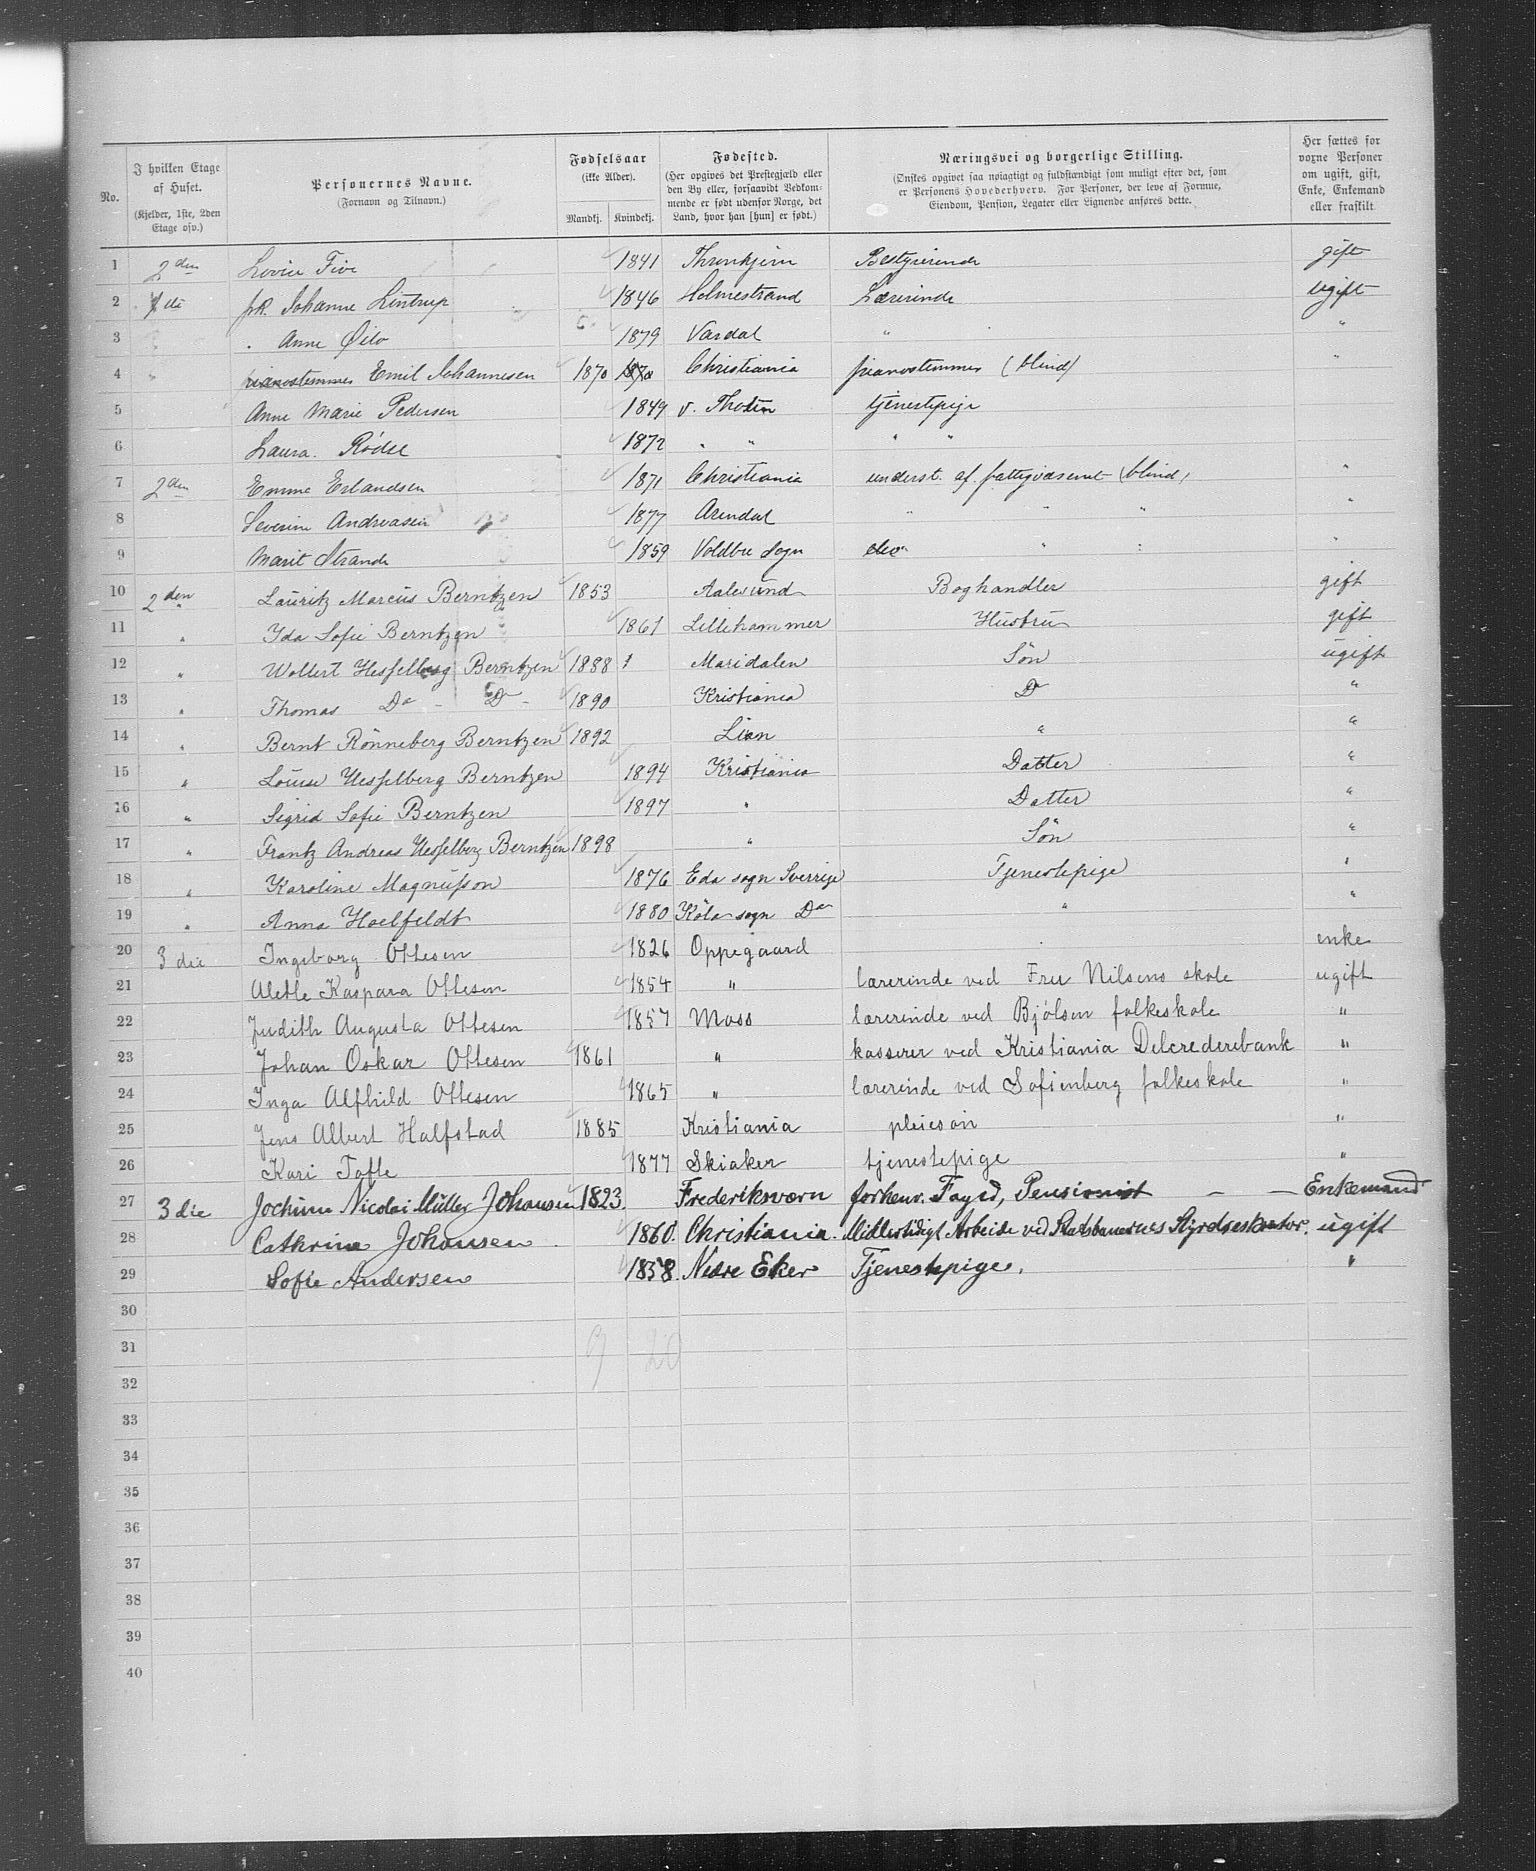 No. | I hvilken Etage af Huset. (Kjelder, 1ste, 2den Etage osv.) | Personernes Navne. (Fornavn og Tilnavn.) | Fødselsaar (ikke Alder). Mandkj. Kvindekj. | Fødested. (Her opgives det Prestegjæld eller den By eller, forsaavidt Vedkommende er født udenfor Norge, det Land, hvor han [hun] er født.) | Næringsvei og borgerlige Stilling. (Ønskes opgivet saa nøiagtigt og fuldstændigt som muligt efter det, som er Personens Hovederhverv. For Personer, der leve af Formue, Eiendom, Pension, Legater eller Lignende anføres dette.) | Her sættes for voxne Personer om ugift, gift, Enke, Enkemand eller fraskilt
1 2den Lovise Five 1841 Thronhjem Bestyrerinde gift
2 1ste frk. Johanne Lintrup 1846 Holmestrand Lærerinde ugift
3 " Anne Øilo 1879 Vardal " "
4 " pianostemmer Emil Johannesen 1870 1870 Christiania pianostemmer (blind) "
5 Anne Marie Pedersen 1849 v. Thoten tjenestepige
6 Laura Rødse 1872 " " " "
7 2den Emma Erlandsen 1871 Christiania underst. af fattigvæsenet (blind) "
8 Severine Andreasen 1877 Arendal " " " "
9 Marit Strande 1859 Voldbu Sogn elev " " "
10 2den " Lauritz Marcus Berntzen 1853 Aalesund Boghandler gift
11 " Ida Sofie Berntzen 1861 Lillehammer Hustru gift
12 " Wollert Hesselberg Berntzen 1888 Maridalen Søn ugift
13 " Thomas Do - Do - 1890 Kristiania Do "
14 " Bernt Rønneberg Berntzen 1892 Lian " "
15 " Louise Hesselberg Berntzen 1894 Kristiania Datter "
16 " Sigrid Sofie Berntzen 1897 " Datter "
17 " Frantz Andreas Hesselberg Berntzen 1898 " Søn "
18 " Karoline Magnusson 1876 Eda sogn Sverrige Tjenestepige "
19 " Anna Hoelfeldt 1880 Köla sogn Do " "
20 3die Ingeborg Ottesen 1826 Oppegaard enke
21 Alette Kaspara Ottesen 1854 " lærerinde ved Fru Nilsens skole ugift
22 Judith Augusta Ottesen 1857 Moss lærerinde ved Bjølsen folkeskole "
23 Johan Oskar Ottesen 1861 " kasserer ved Kristiania Delcrederebank "
24 Inga Alfhild Ottesen 1865 " lærerinde ved Sofienberg folkeskole "
25 Jens Albert Halfstad 1885 Kristiania pleiesøn "
26 Kari Tofte 1877 Skiaker tjenestepige "
27 3die Jochum Nicolai Müller Johansen 1823. Frederiksværn forhenv. Foged, Pensionist — — Enkemand
28 Cathrine Johansen 1860. Christiania. Midlertidigt Arbeide ved Statsbanernes Styrelseskontor. ugift
29 Sofie Andersen 1858. Nedre Eker Tjenestepige. "
30
31 9 20
32
33
34
35
36
37
38
39
40